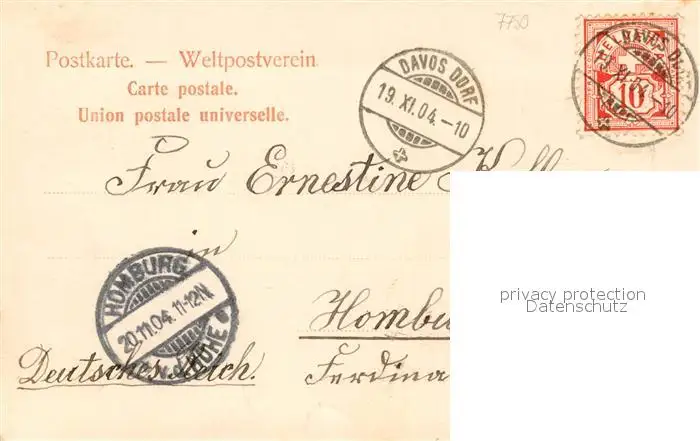 7750
Postkarte. — Weltpostverein.
Carte postale.
Union postale universelle.
DAVOS DORF
19. XI. 04. – 10
DAVOS D
10
Frau Ernestine
in
HOMBURG
20.11.04. 11-12N
HÖHE
Hombu
Deutsches Reich.
Ferdina
privacy protection
Datenschutz